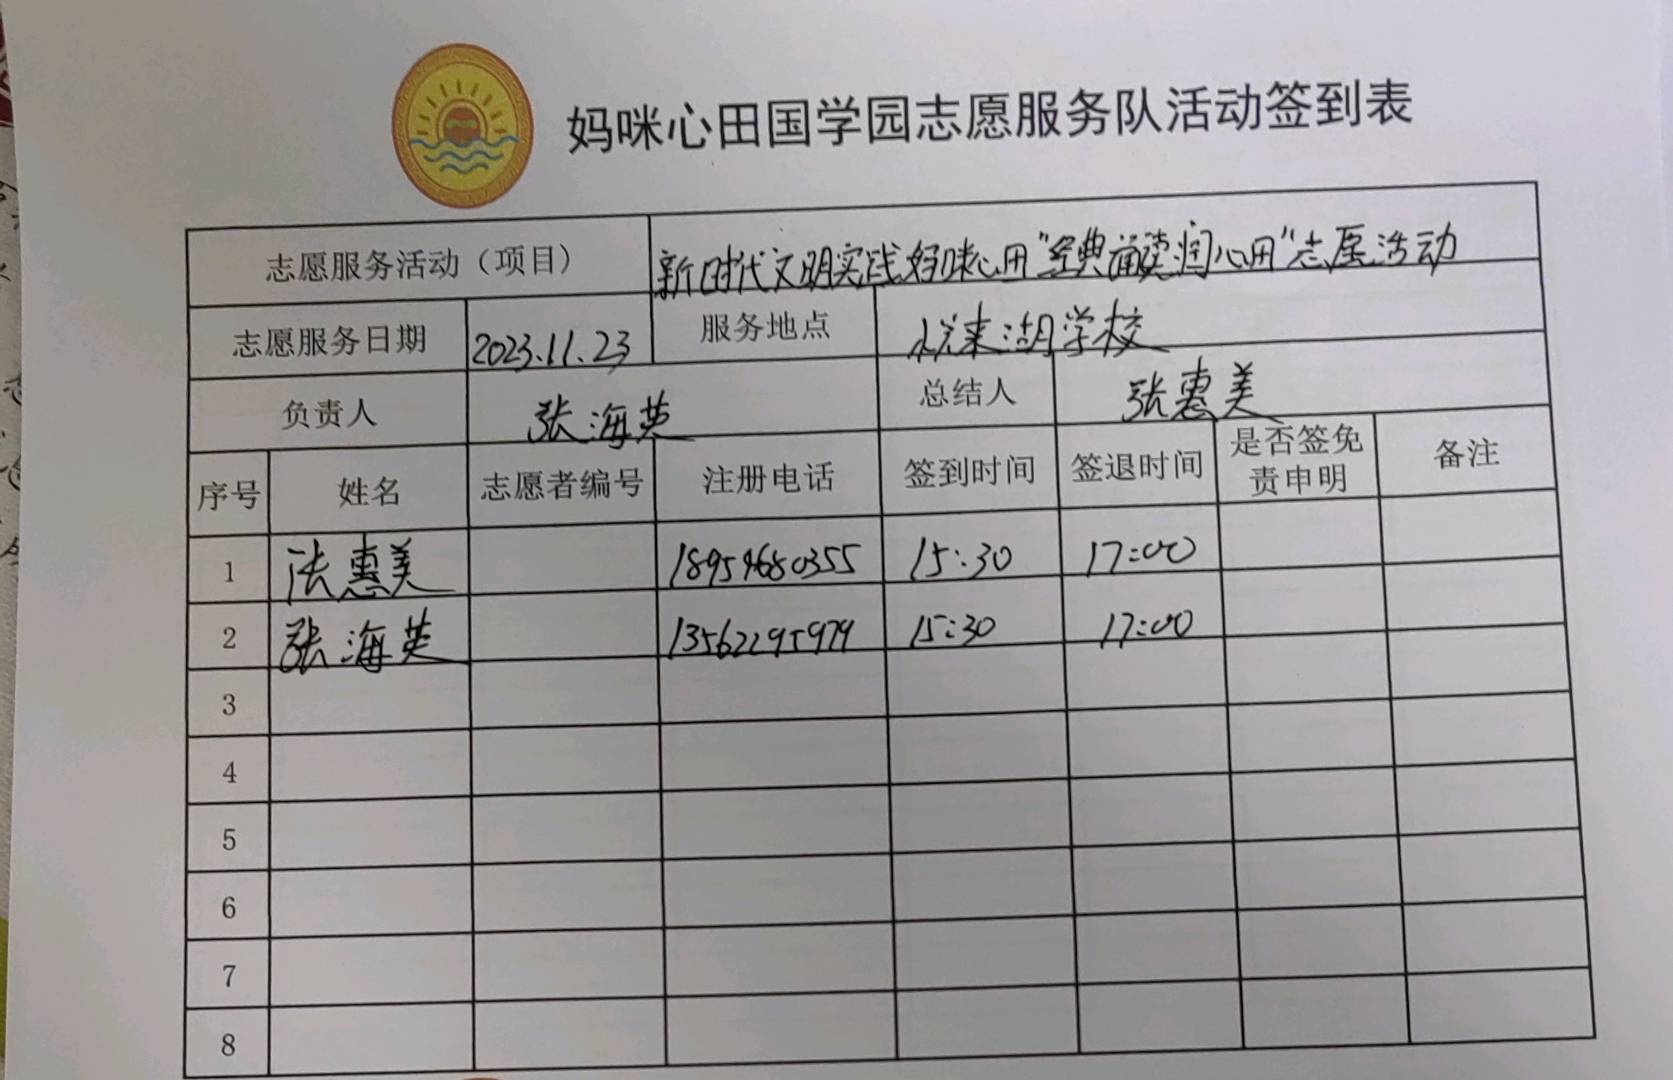 妈咪心田国学园志愿服务队活动签到表
志愿服务活动（项目） 新时代文明实践妈咪心田"经典诵读润心田"志愿活动
志愿服务日期 2023.11.23 服务地点 悦来湖学校
负责人 张海英 总结人 张惠美
序号 姓名 志愿者编号 注册电话 签到时间 签退时间 是否签免责申明 备注
1 张惠美 18954680355 15:30 17:00
2 张海英 13562295979 15:30 17:00
3
4
5
6
7
8